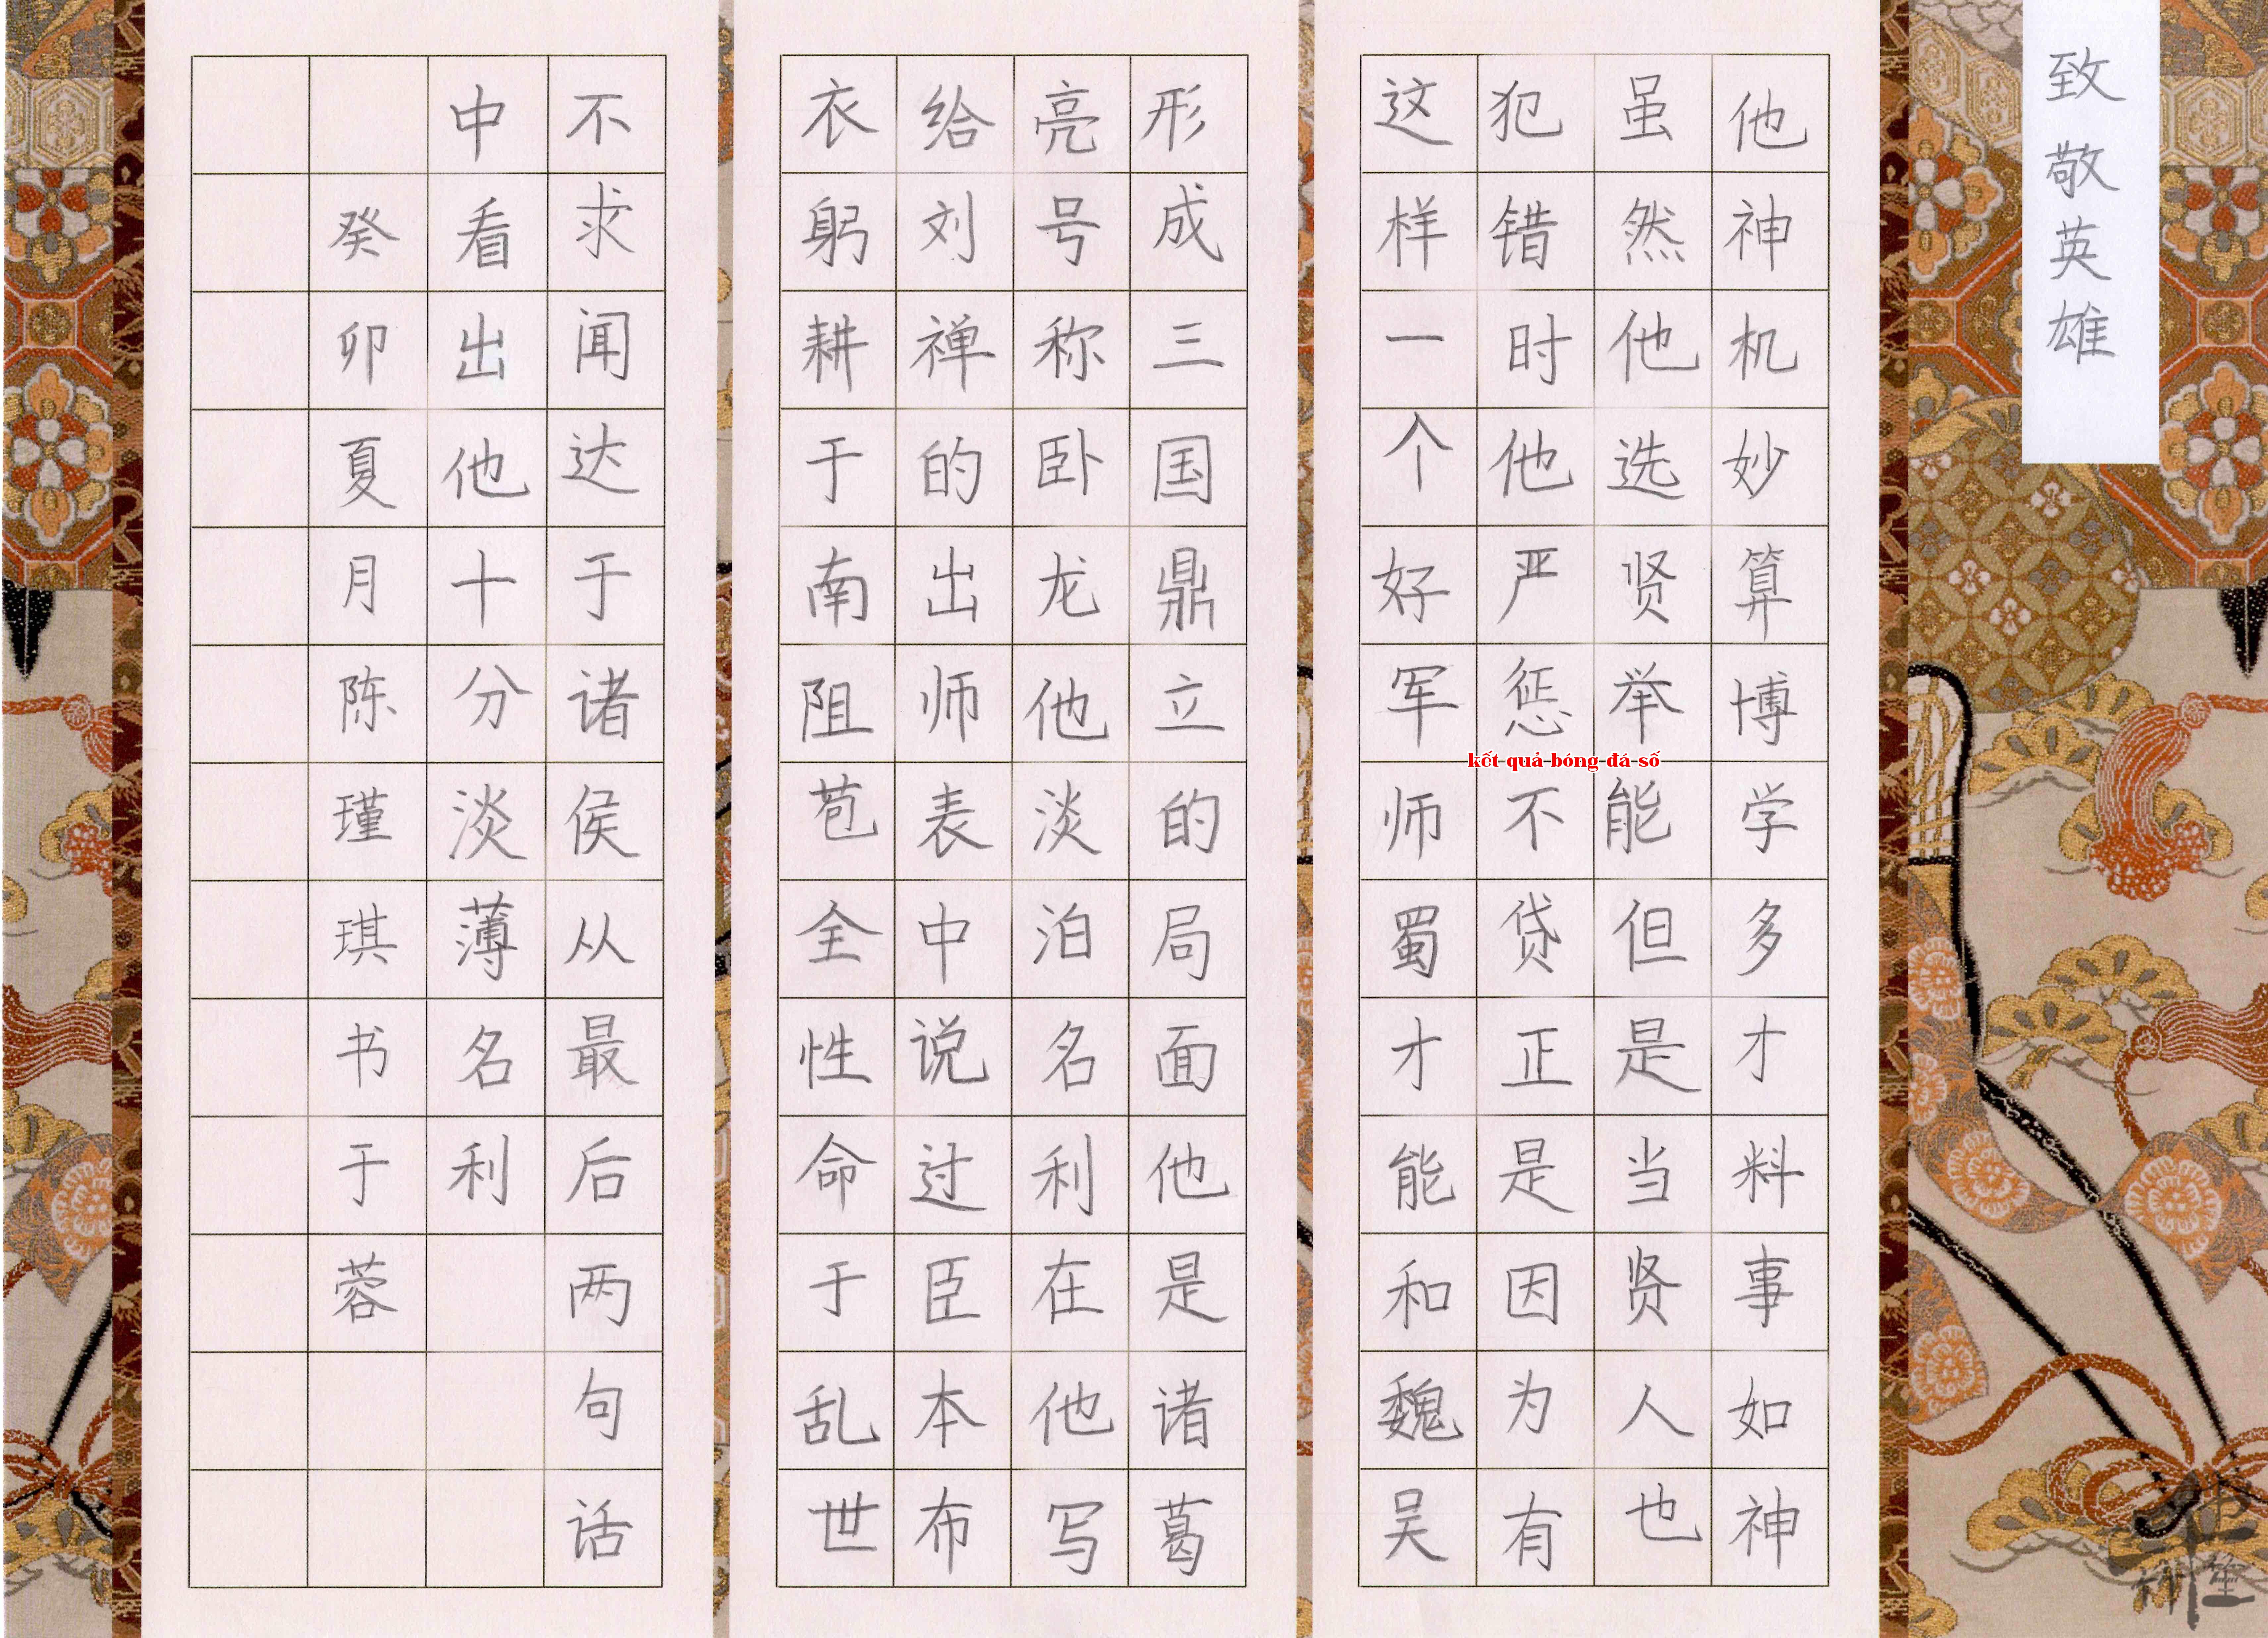 致敬英雄
他神机妙算博学多才料事如神
虽然他选贤举能但是当贤人也
犯错时他严惩不贷正是因为有
这样一个好军师蜀才能和魏吴
形成三国鼎立的局面他是诸葛
亮号称卧龙他淡泊名利在他写
给刘禅的出师表中说过臣本布
衣躬耕于南阻苞全性命于乱世
不求闻达于诸侯从最后两句话
中看出他十分淡薄名利
癸卯夏月陈瑾琪书于蓉
kết quả bóng đá số